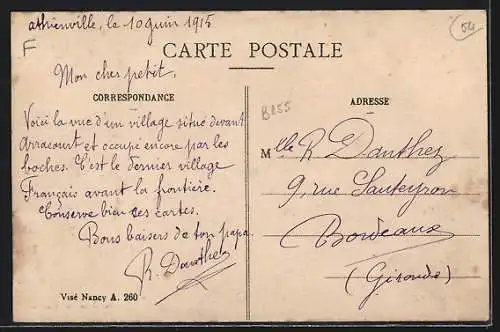 Athienville, le 10 juin 1915
F
54
CARTE POSTALE
Mon cher petit.
CORRESPONDANCE
B255
ADRESSE
Voici la vue d'un village situé devant
Arracourt et occupé encore par les
boches. C'est le dernier village
Français avant la frontière.
Conserve bien ces cartes.
Bons baisers de ton papa.
R. Danthez
Mlle R Danthez
9, rue Sauteyron
Bordeaux
(Gironde)
Visé Nancy A. 260